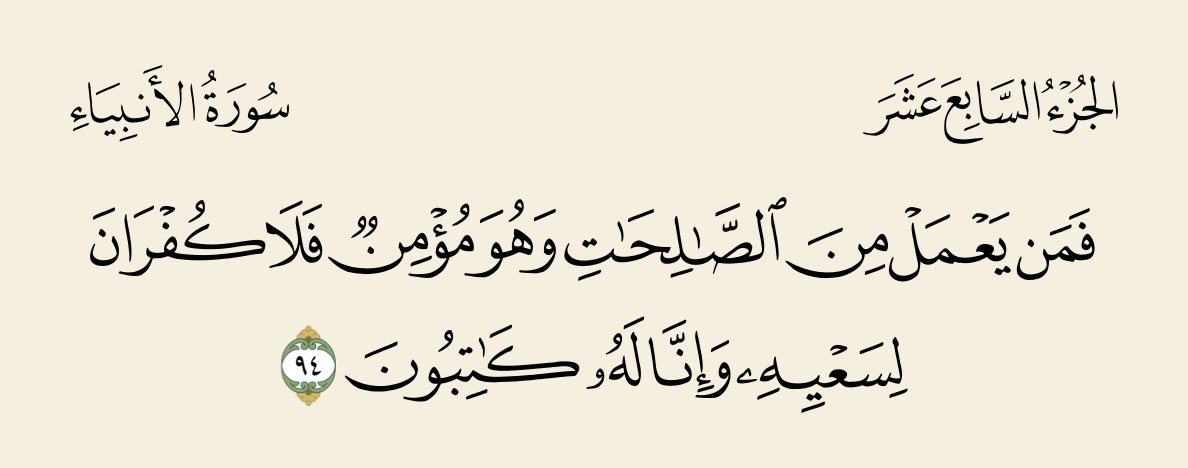 الجُزْءُ السَّابِعَ عَشَرَ
سُورَةُ الأَنبِيَاءِ
فَمَن يَعْمَلْ مِنَ ٱلصَّـٰلِحَـٰتِ وَهُوَ مُؤْمِنٌ فَلَا كُفْرَانَ
لِسَعْيِهِۦ وَإِنَّا لَهُۥ كَـٰتِبُونَ ٩٤